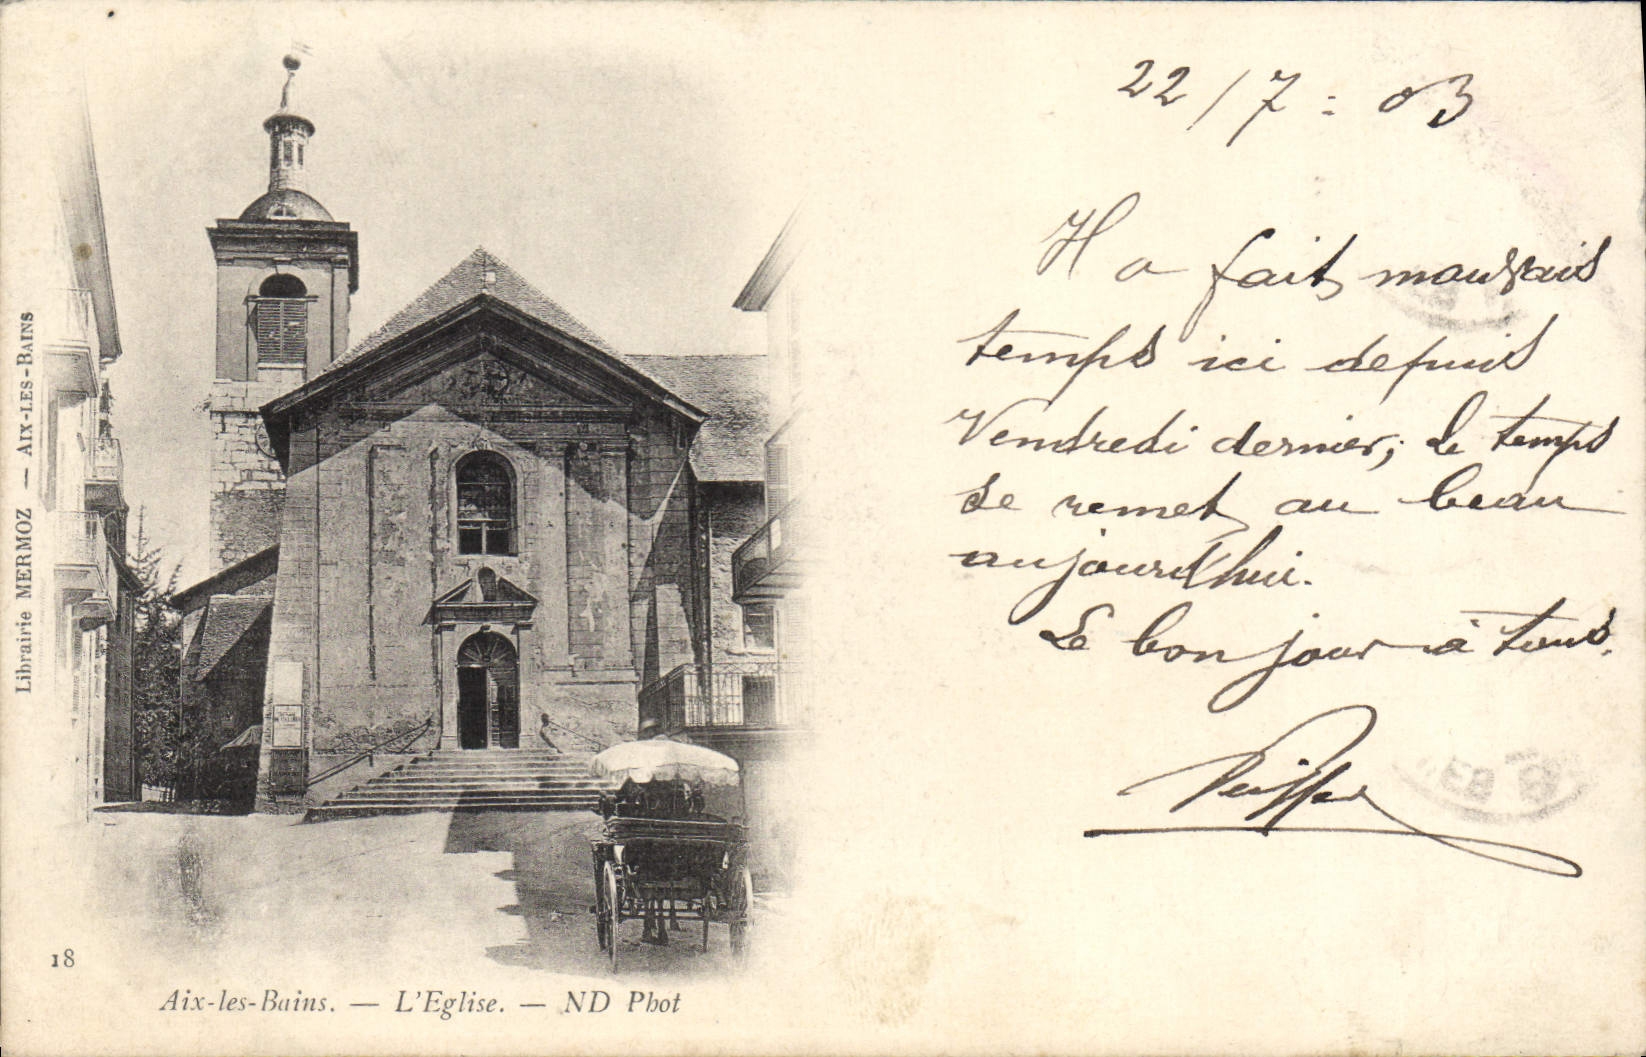 Librairie MERMOZ — AIX-LES-BAINS
18
Aix-les-Bains. — L'Eglise. — ND Phot
22/7 : 03
Il a fait mauvais
temps ici depuis
Vendredi dernier; le temps
se remet au beau
aujourd'hui.
Le bonjour à tous.